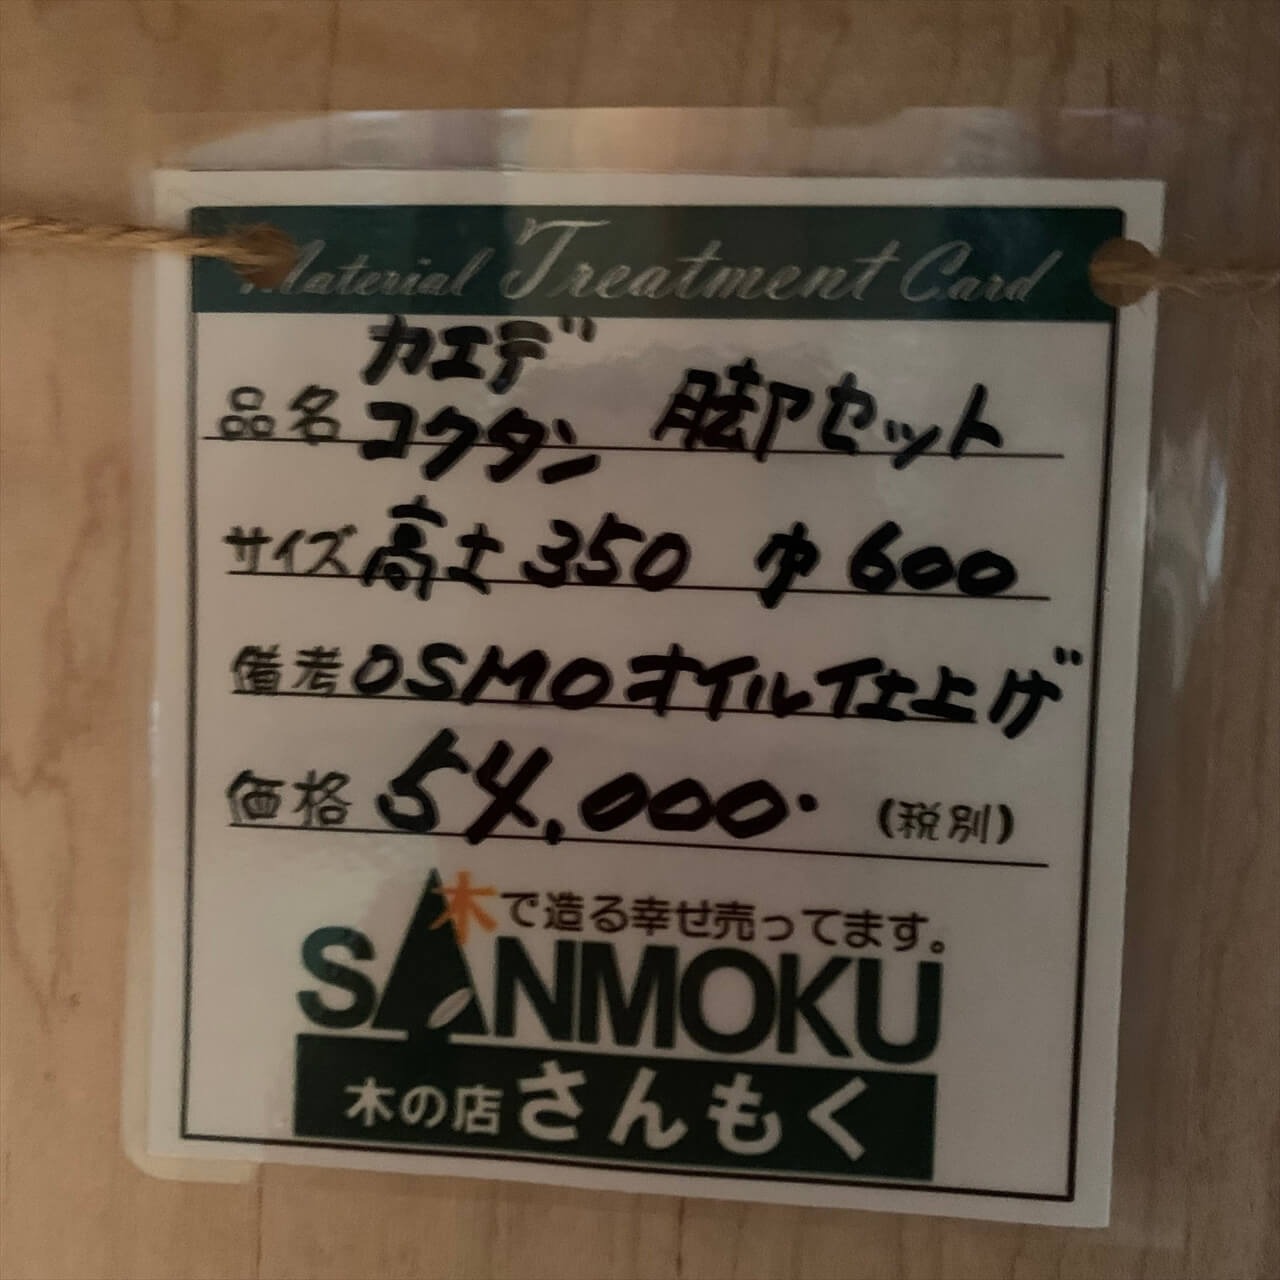 Material Treatment Card
カエデ
品名 コクタン 脚セット
サイズ 高さ 350 巾 600
備考 OSMOオイル仕上げ
価格 54,000. (税別)
木で造る幸せ売ってます。
SANMOKU
木の店さんもく